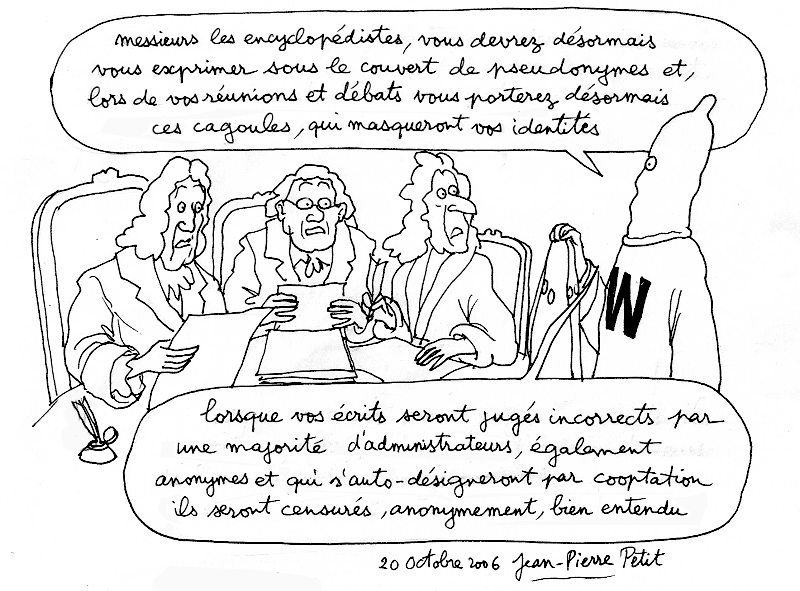 messieurs les encyclopédistes, vous devrez désormais
vous exprimer sous le couvert de pseudonymes et,
lors de vos réunions et débats vous porterez désormais
ces cagoules, qui masqueront vos identités
W
lorsque vos écrits seront jugés incorrects par
une majorité d'administrateurs, également
anonymes et qui s'auto-désigneront par cooptation
ils seront censurés, anonymement, bien entendu
20 Octobre 2006 Jean-Pierre Petit